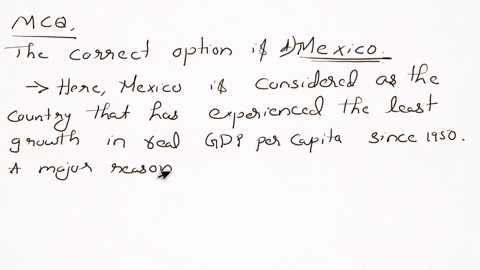 MCQ.
The correct option is d) Mexico.
→ Here, Mexico is considered as the
country that has experienced the least
growth in real GDP per capita since 1950.
A major reason